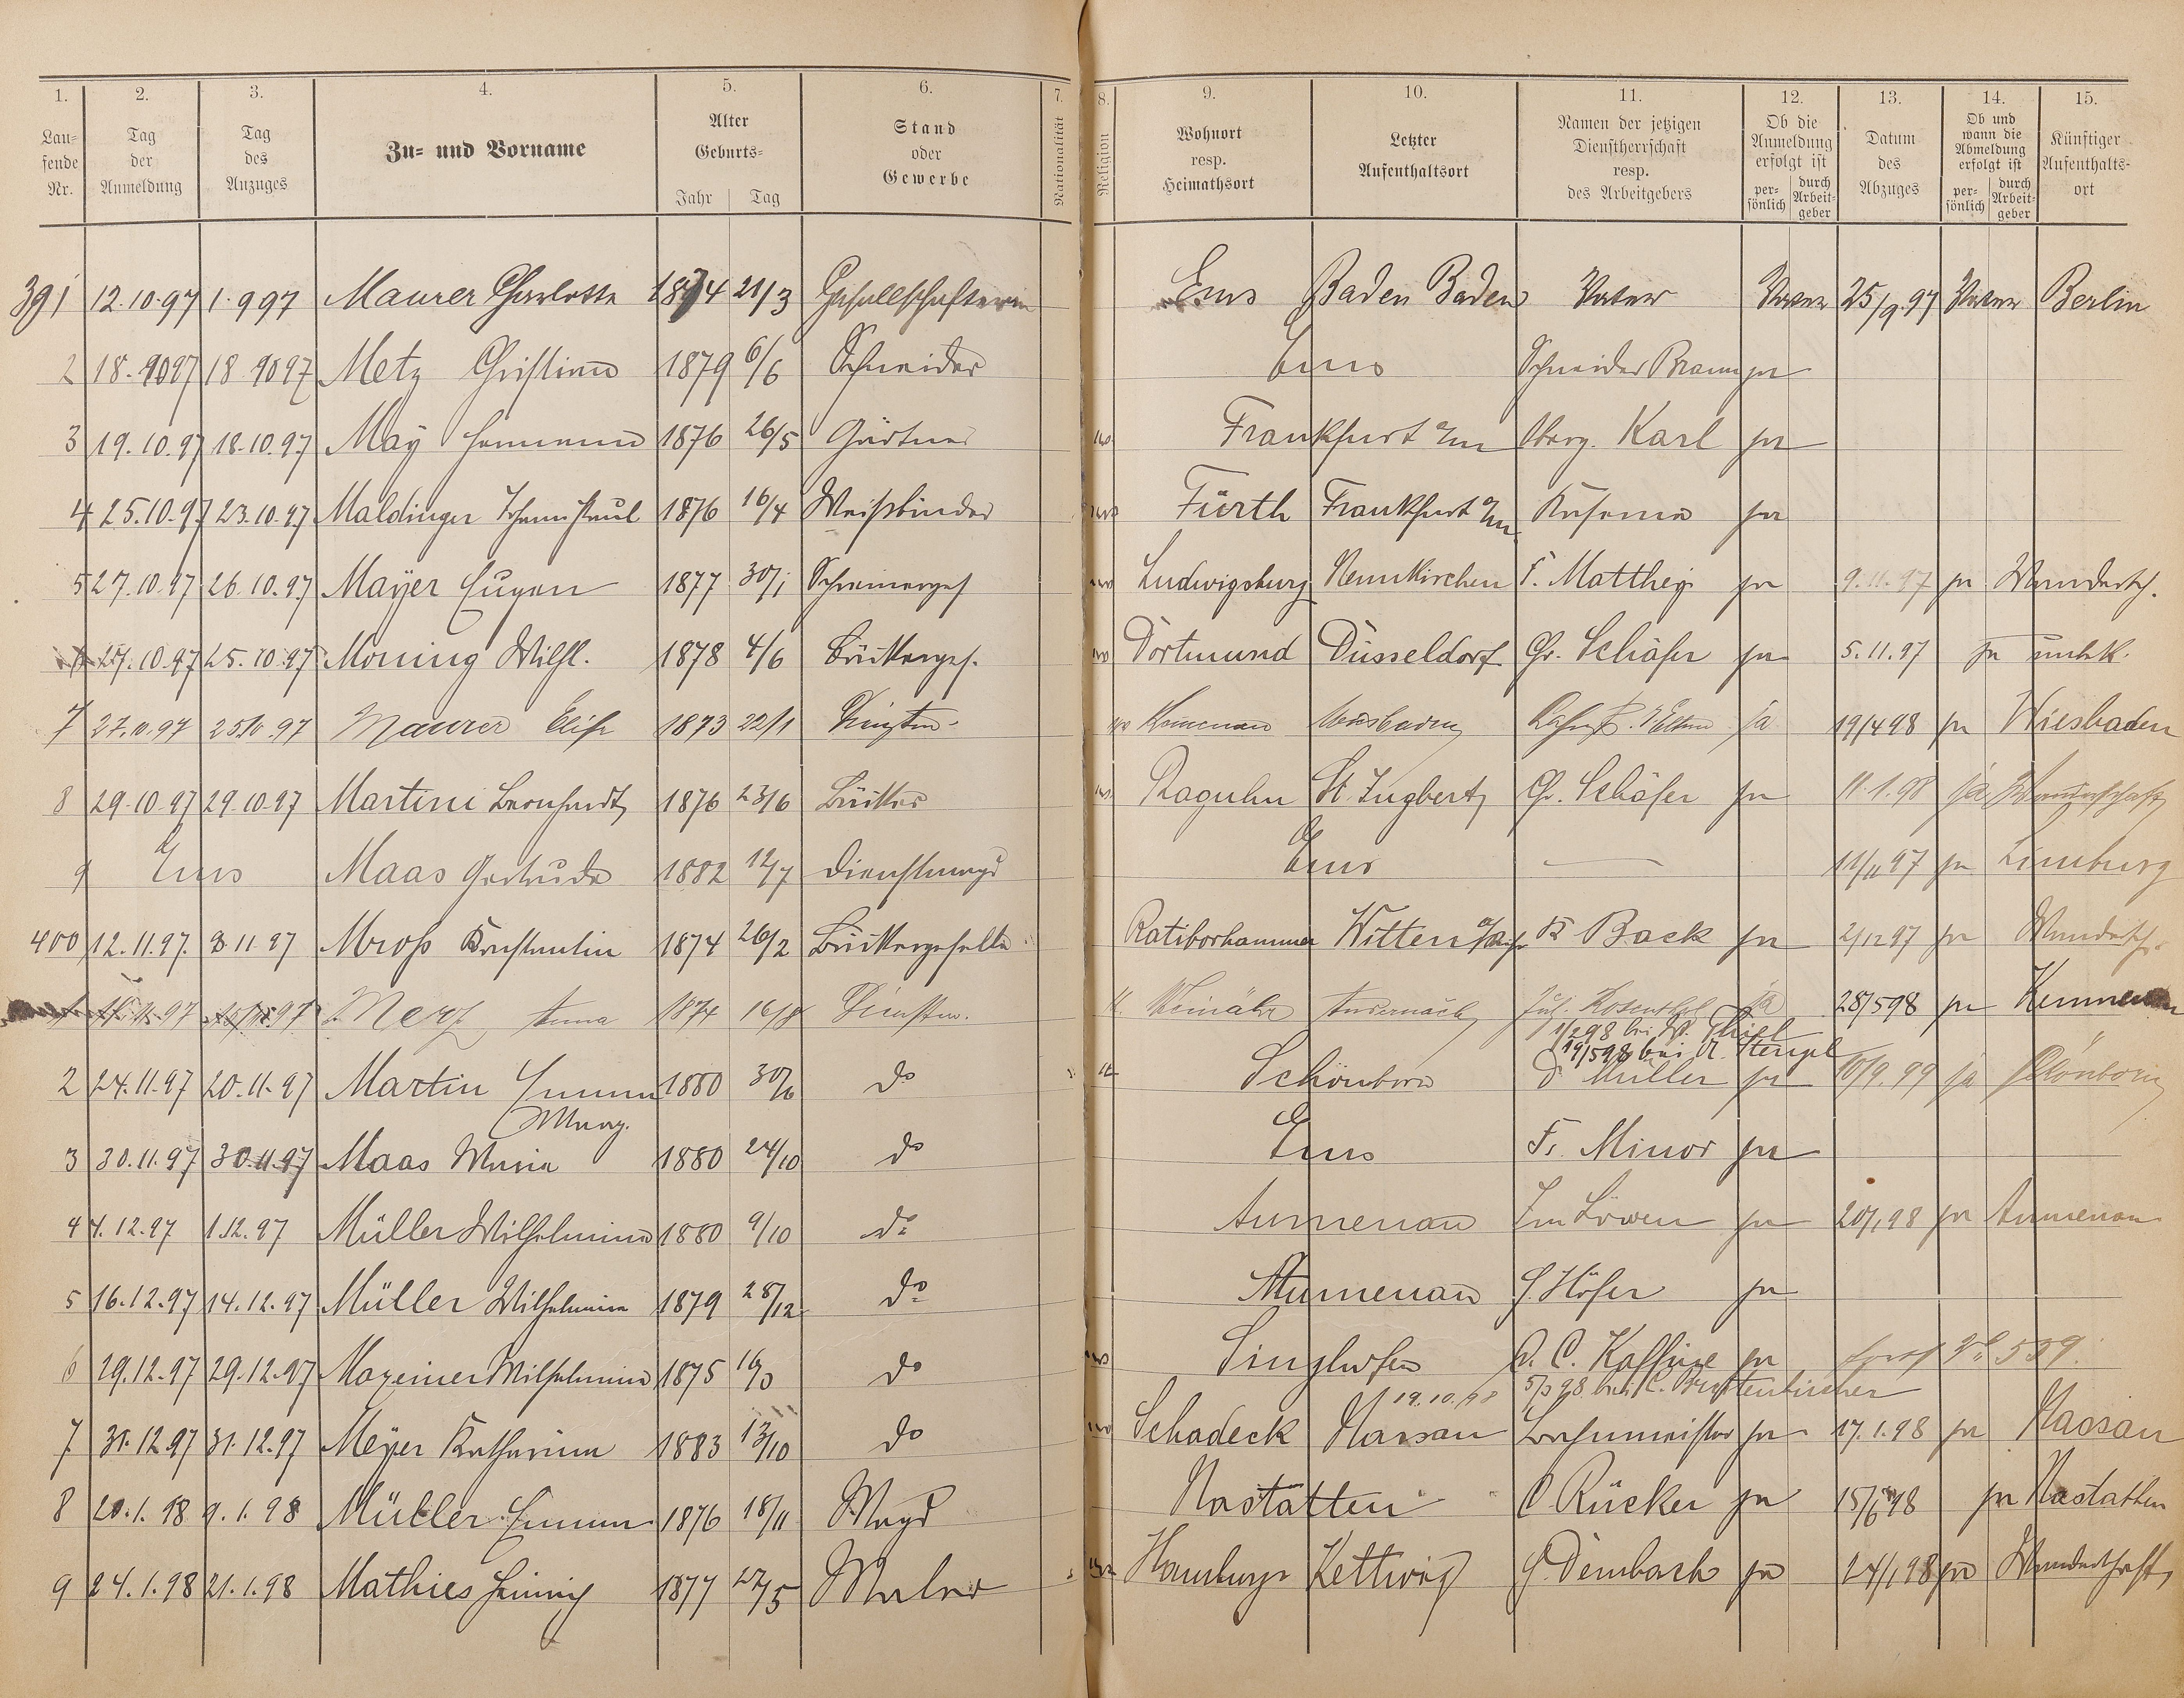 1. 2. 3. 4. 5. 6. 7. 8. 9. 10. 11. 12. 13. 14. 15.
Laufende Nr. | Tag der Anmeldung | Tag des Anzuges | Zu- und Vorname | Alter Geburts- Jahr Tag | Stand oder Gewerbe | Nationalität | Religion | Wohnort resp. Heimathsort | Letzter Aufenthaltsort | Namen der jetzigen Dienstherrschaft resp. des Arbeitgebers | Ob die Anmeldung erfolgt ist persönlich durch Arbeitgeber | Datum des Abzuges | Ob und wann die Abmeldung erfolgt ist persönlich durch Arbeitgeber | Künftiger Aufenthaltsort
391 12.10.97 1.9 97 Maurer Charlotte 1874 21/3 Gesellschafterin Ems Baden Baden Vater Vater 25/9.97 Vater Berlin
2 18.10 97 18 10 97 Metz Christian 1879 6/6 Schneider Ems Schneider Braun ja
3 19.10.97 18.10.97 Maÿ Hermann 1876 26/5 Gärtner Frankfurt a/m Karl ja
4 25.10.97 23.10.97 Maldinger 1876 16/4 Weißbinder Fürth Frankfurt a/m ja
5 27.10.97 26.10.97 Maÿer Eugen 1877 30/1 Schreinerges Ludwigsburg Neunkirchen F. Matthey ja 9.11.97 ja Wandersch.
27.10.97 25.10.97 Moning Wilh. 1878 4/6 Bäckerges. Dortmund Düsseldorf Chr. Schäfer ja 5.11.97 ja unbek.
7 27.10.97 25 10.97 Maurer Elise 1873 22/1 Dienstm. Kemenau Wiesbaden ja 19/4 98 ja Wiesbaden
8 29.10.97 29.10.97 Martini Bernhardt 1876 23/6 Bäcker Raguhn St. Ingbert Chr. Schäfer ja 11.1.98 ja Wanderschaft
9 Ems Maas Gertrude 1882 12/7 Dienstmagd Ems 11/11 97 ja Limburg
400 12.11.97. 8.11 97 Mroß Konstantin 1874 26/2 Bäckergeselle Ratiborhammer Witten a/Ruhr K Back ja 2/12 97 ja Wandersch.
97 97 Merz Anna 1874 16/8 Dienstm. Weinähr Andernach Jul. Rosenthal ja 28/5 98 ja Kemmenau
1/2 98 bei W. Thiel
19/5 98 bei A. Stengel
2 24.11.97 20.11.97 Martin Emma 1880 30/6 do Schönborn D Müller ja 10/9. 99 ja Schönborn
Marg.
3 30.11.97 30.11.97 Maas Maria 1880 24/10 do Ems Fr. Minor ja
4 4.12.97 1.12.97 Müller Wilhelmine 1880 9/10 do Aumenau Im Löwen ja 20/1 98 ja Aumenau
5 16.12.97 14.12.97 Müller Wilhelmine 1879 28/12 do Aumenau Höfer ja
6 29.12.97 29.12.97 Maxeiner Wilhelmine 1875 do Singhofen C. Kaffine ja
19.10.98 5/3 98 bei C.
7 31.12.97 31.12.97 Meÿer Katharina 1883 13/10 do Schadeck Nassau Bahnmeister ja 17.1.98 ja Nassau
8 20.1.98 9.1.98 Müller Emma 1876 18/11 Magd Nastätten C. Rücker ja 15/6 98 ja Nastatten
9 24.1.98 21.1.98 Mathies Heinrich 1877 27/5 Maler Hamburg Kettwig Dembach ja 24/1 98 ja Wanderschaft